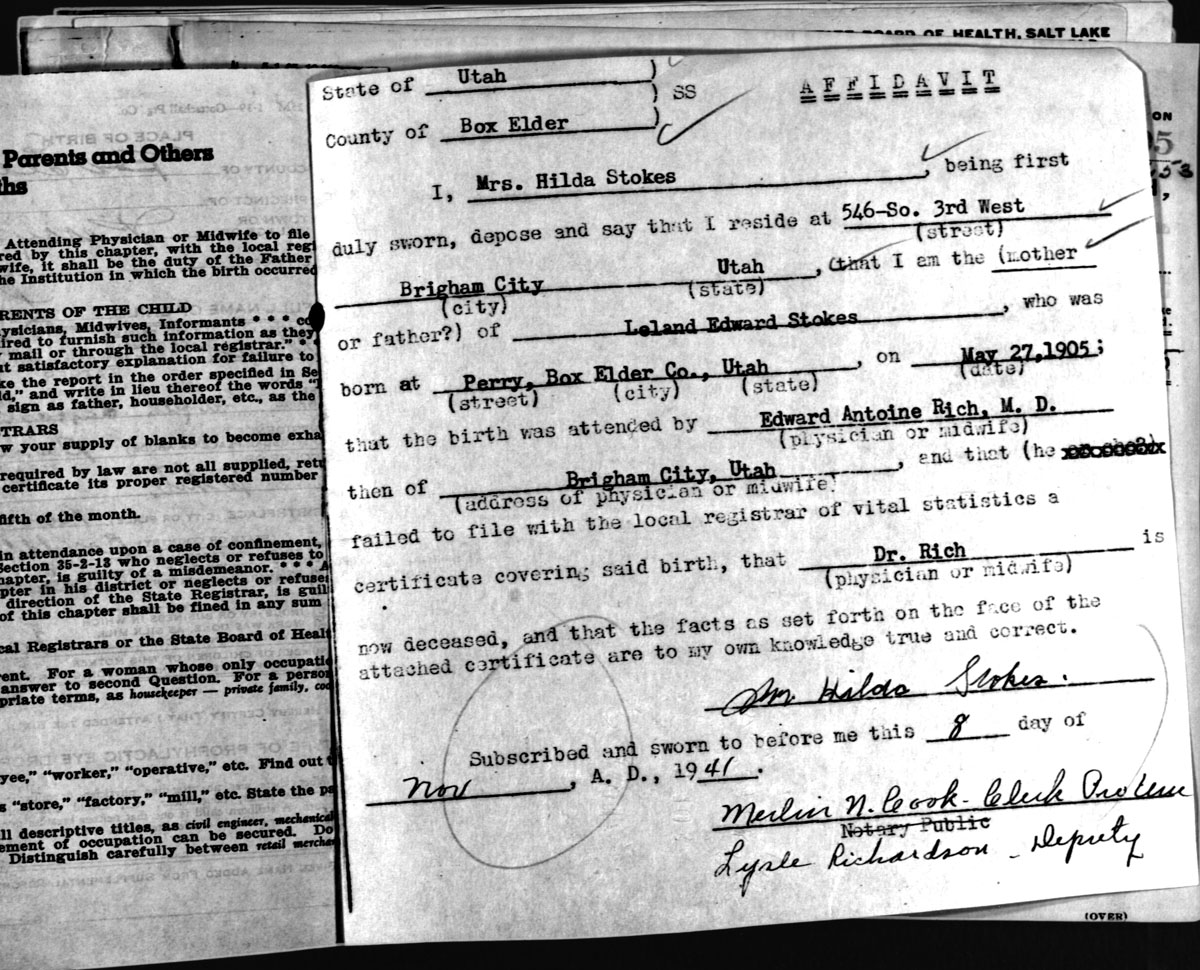 BOARD OF HEALTH, SALT LAKE
State of Utah )
) SS
County of Box Elder )
AFFIDAVIT
I, Mrs. Hilda Stokes, being first
duly sworn, depose and say that I reside at 546-So. 3rd West
(street)
Brigham City Utah, (that I am the (mother
(city) (state)
or father?) of Leland Edward Stokes, who was
born at Perry, Box Elder Co., Utah, on May 27,1905;
(street) (city) (state) (date)
that the birth was attended by Edward Antoine Rich, M. D.
(physician or midwife)
then of Brigham City, Utah, and that (he or she?)
(address of physician or midwife)
failed to file with the local registrar of vital statistics a
certificate covering said birth, that Dr. Rich is
(physician or midwife)
now deceased, and that the facts as set forth on the face of the
attached certificate are to my own knowledge true and correct.
Hilda Stokes.
Subscribed and sworn to before me this 8 day of
Nov, A. D., 1941.
Merlin N. Cook - Clerk Protem
Notary Public
Lysle Richardson - Deputy
(OVER)
Parents and Others
ths
Attending Physician or Midwife to file
red by this chapter, with the local regi
wife, it shall be the duty of the Father
he Institution in which the birth occurred
RENTS OF THE CHILD
ysicians, Midwives, Informants * * * co
ired to furnish such information as they
mail or through the local registrar." *
t satisfactory explanation for failure to
ke the report in the order specified in Se
d," and write in lieu thereof the words "
sign as father, householder, etc., as the
TRARS
w your supply of blanks to become exha
required by law are not all supplied, retu
certificate its proper registered number
fifth of the month.
in attendance upon a case of confinement,
Section 35-2-13 who neglects or refuses to
hapter, is guilty of a misdemeanor. * * * A
pter in his district or neglects or refuses
direction of the State Registrar, is guil
of this chapter shall be fined in any sum
cal Registrars or the State Board of Healt
rent. For a woman whose only occupatio
answer to second Question. For a person
priate terms, as housekeeper — private family, coo
yee," "worker," "operative," etc. Find out t
s "store," "factory," "mill," etc. State the pa
ll descriptive titles, as civil engineer, mechanical
ement of occupation can be secured. Do
Distinguish carefully between retail merchan